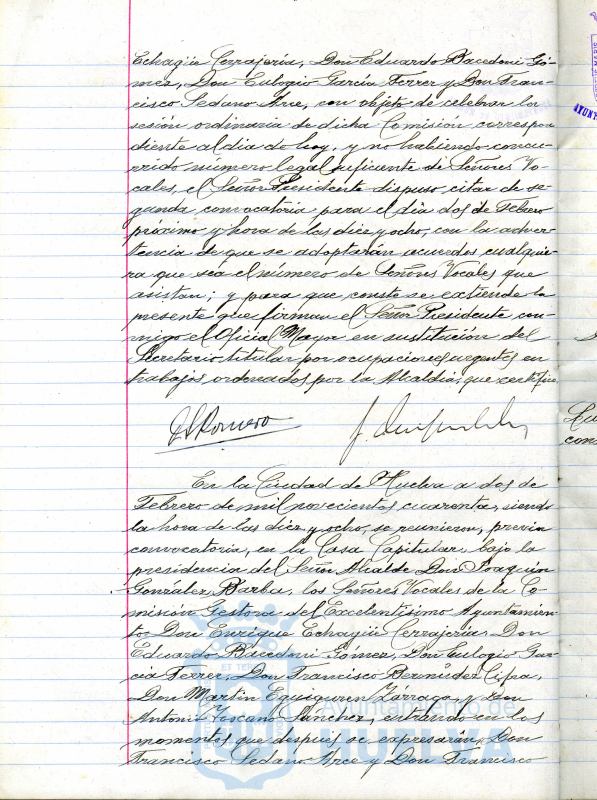 Echagüe Cerrajería, Don Eduardo Bacedoni Gó-
mez, Don Eulogio García Ferrer y Don Fran-
cisco Sedano Arce, con objeto de celebrar la
sesión ordinaria de dicha Comisión correspon
diente al día de hoy, y no habiendo concu-
rrido número legal suficiente de Señores Vo-
cales, el Señor Presidente dispuso citar de se-
gunda convocatoria para el día dos de Febrero
próximo y hora de las diez y ocho, con la adver
tencia de que se adoptarán acuerdos cualquie-
ra que sea el número de Señores Vocales que
asistan; y para que conste se extiende la
presente que firman el Señor Presidente con-
migo el Oficial Mayor en sustitución del
Secretario titular por ocupaciones urgentes en
trabajos ordenados por la Alcaldía, que certifico.
Romero
En la Ciudad de Huelva a dos de
Febrero de mil novecientos cuarenta, siendo
la hora de las diez y ocho, se reunieron, previa
convocatoria, en la Casa Capitular, bajo la
presidencia del Señor Alcalde Don Joaquín
González Barba, los Señores Vocales de la Co-
misión Gestora del Excelentísimo Ayuntamien
to Don Enrique Echagüe Cerrajería, Don
Eduardo Bacedoni Gómez, Don Eulogio Gar-
cía Ferrer, Don Francisco Bermúdez Cipa,
Don Martín Eguiguren Tárrago, y Don
Antonio Toscano Sánchez, entrando en los
momentos que después se expresarán, Don
Francisco Sedano Arce y Don Francisco
Ayuntamiento de
HUELVA